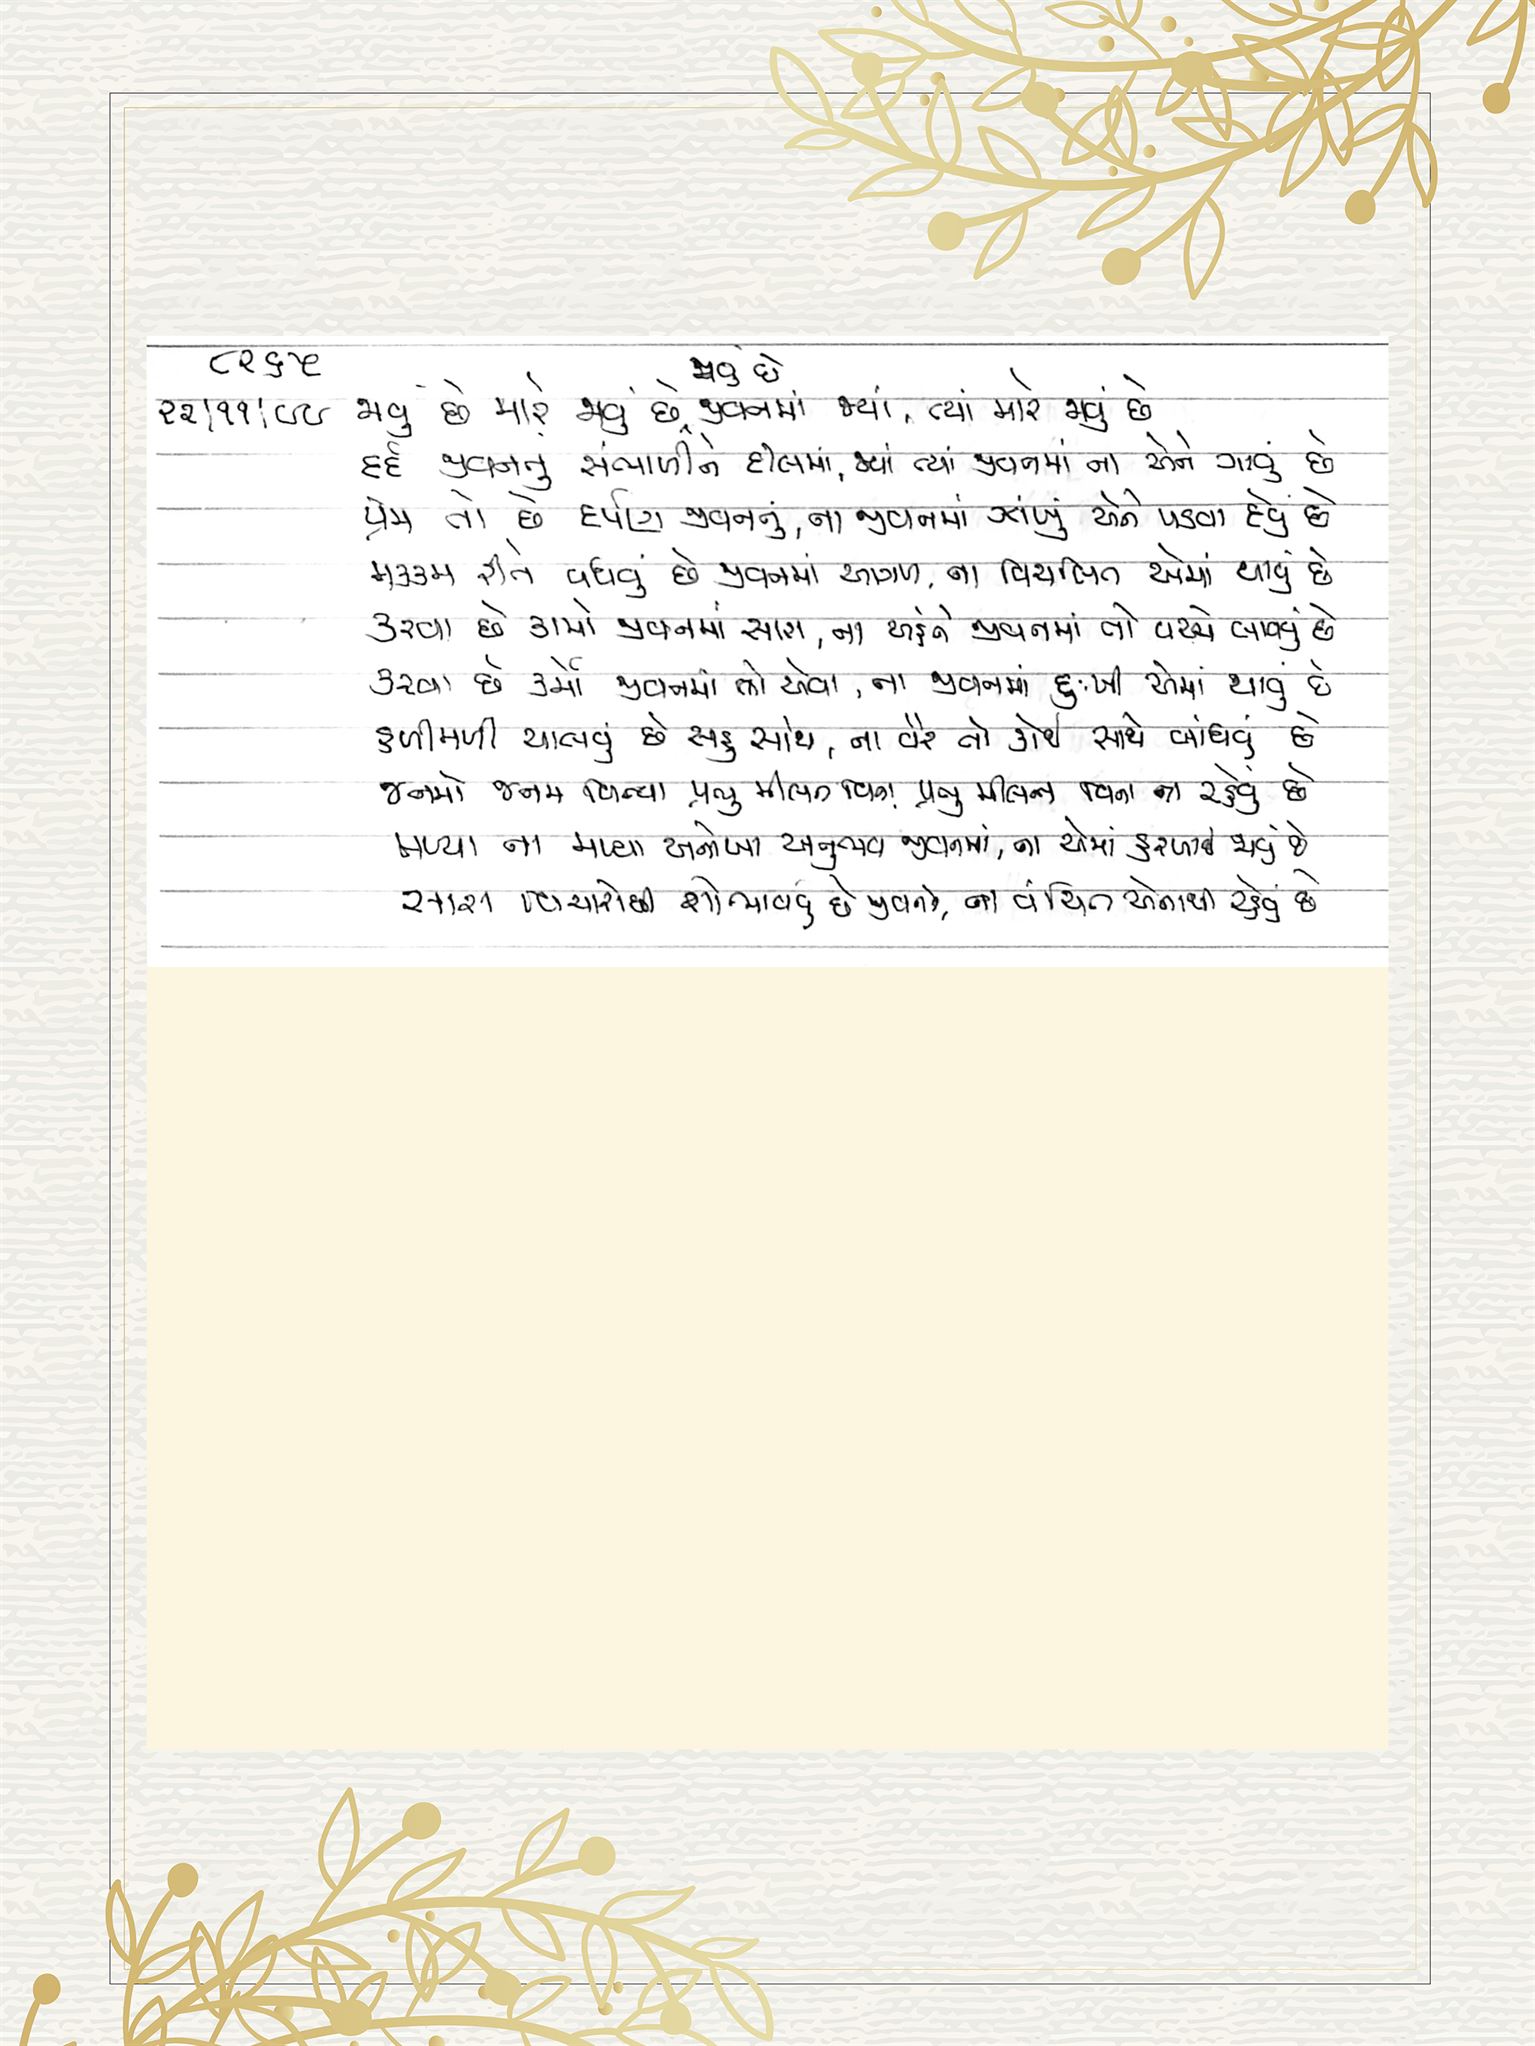 ૮૨૬૫
જાવું છે
૨૨/૧૧/૯૯ જાવું છે મારે જાવું છે, જીવનમાં જ્યાં, ત્યાં મારે જાવું છે
દર્દ જીવનનું સંભાળીને દીલમાં, જ્યાં ત્યાં જીવનમાં ના એને ગાવું છે
પ્રેમ તો છે દર્પણ જીવનનું, ના જીવનમાં ઝાંખું એને પડવા દેવું છે
મક્કમ રીતે વધવું છે જીવનમાં આગળ, ના વિચલિત એમાં થાવું છે
કરવા છે કામો જીવનમાં સારા, ના અહંને જીવનમાં તો વચ્ચે લાવવું છે
કરવા છે કર્મો જીવનમાં તો એવા, ના જીવનમાં દુઃખી એમાં થાવું છે
હળીમળી ચાલવું છે સહુ સાથે, ના વૈર તો કોઈ સાથે બાંધવું છે
જનમો જનમ વિત્યા પ્રભુ મીલન વિના પ્રભુ મીલન વિના ના રહેવું છે
મળ્યા ના મળ્યા અનોખા અનુભવ જીવનમાં, ના એમાં હરખાઈ જાવું છે
સારા વિચારોથી શોભાવવું છે જીવનને, ના વંચિત એનાથી રહેવું છે